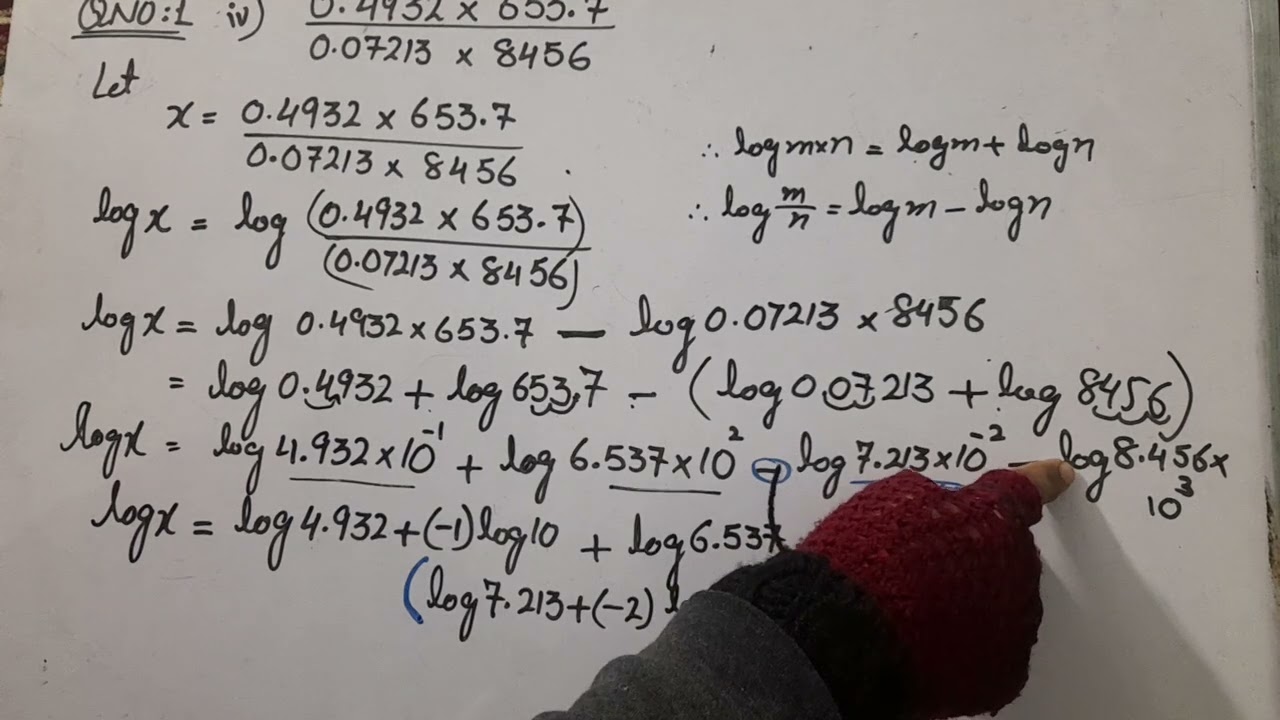 QNO:1 iv) 0.4932 × 653.7
0.07213 × 8456
Let
x = 0.4932 × 653.7
0.07213 × 8456
∴ log m×n = log m + log n
log x = log (0.4932 × 653.7)
(0.07213 × 8456)
∴ log m/n = log m − log n
log x = log 0.4932 × 653.7 − log 0.07213 × 8456
= log 0.4932 + log 653.7 − (log 0.07213 + log 8456)
log x = log 4.932×10⁻¹ + log 6.537×10² − log 7.213×10⁻² − log 8.456×
10³
log x = log 4.932 + (−1) log 10 + log 6.537
(log 7.213 + (−2) l